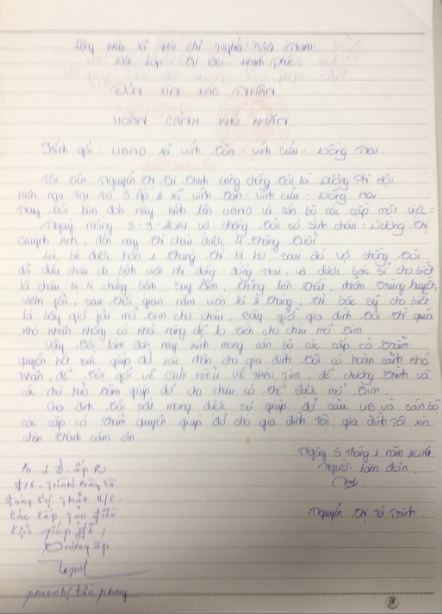 Cộng Hòa Xã Hội Chủ Nghĩa Việt Nam
Độc lập - Tự Do - Hạnh Phúc
ĐƠN XIN XÁC NHẬN
HOÀN CẢNH KHÓ KHĂN
Kính gửi: UBND xã Vĩnh Tân - Vĩnh Cửu - Đồng Nai.
Tôi tên: Nguyễn Thị Tú Trinh cùng chồng tôi là Dương Phi
Hiện ngụ tại ấp 2 xã Vĩnh Tân - Vĩnh Cửu - Đồng Nai
Nay tôi làm đơn này kính lên UBND và cán bộ các cấp một việc:
Ngày mồng 3-9-2014 vợ chồng tôi có sinh cháu: Dương Thị
Quỳnh Anh, đến nay thì cháu được 4 tháng tuổi
Lúc bé được hơn 1 tháng thì bị ho, sau đó vợ chồng tôi
đã đưa cháu đi bệnh viện nhi đồng Đồng Nai, và được bác sĩ cho biết
là cháu bị 4 chứng bệnh: suy tim, thông liên thất,
viêm phổi, sau thời gian nằm viện là 2 tháng, thì bác sỹ cho biết
là bây giờ phải mổ tim cho cháu, bây giờ gia đình tôi thì quá
khó khăn không có khả năng để lo tiền cho cháu mổ tim
Vậy tôi làm đơn này kính mong cán bộ các cấp có thẩm
quyền hết sức giúp đỡ xác nhận cho gia đình tôi có hoàn cảnh khó
khăn, để tôi gửi về TRÁI TIM, để chương trình và
các nhà hảo tâm giúp đỡ cho cháu có thể được mổ tim.
Gia đình tôi rất mong được sự giúp đỡ của UB và cán bộ
các cấp có thẩm quyền giúp đỡ cho gia đình tôi, gia đình tôi xin
chân thành cảm ơn
Ngày 5 tháng 1 năm
Người làm đơn
Nguyễn Thị Tú Trinh
ấp 2
Đúng sự thật
các cấp tạo điều
kiện giúp đỡ
Trưởng ấp